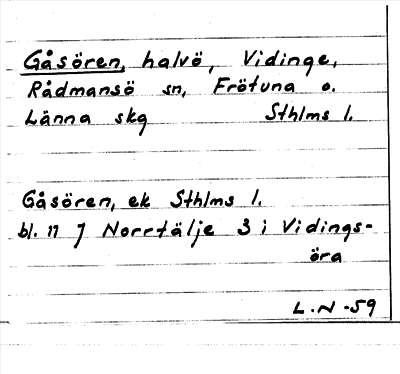 Gåsören, halvö, Vidinge,
Rådmansö sn, Frötuna o.
Länna skg Sthlms l.
Gåsören, ek Sthlms l.
bl. 11 J Norrtälje 3 i Vidings-
öra
L.N -59